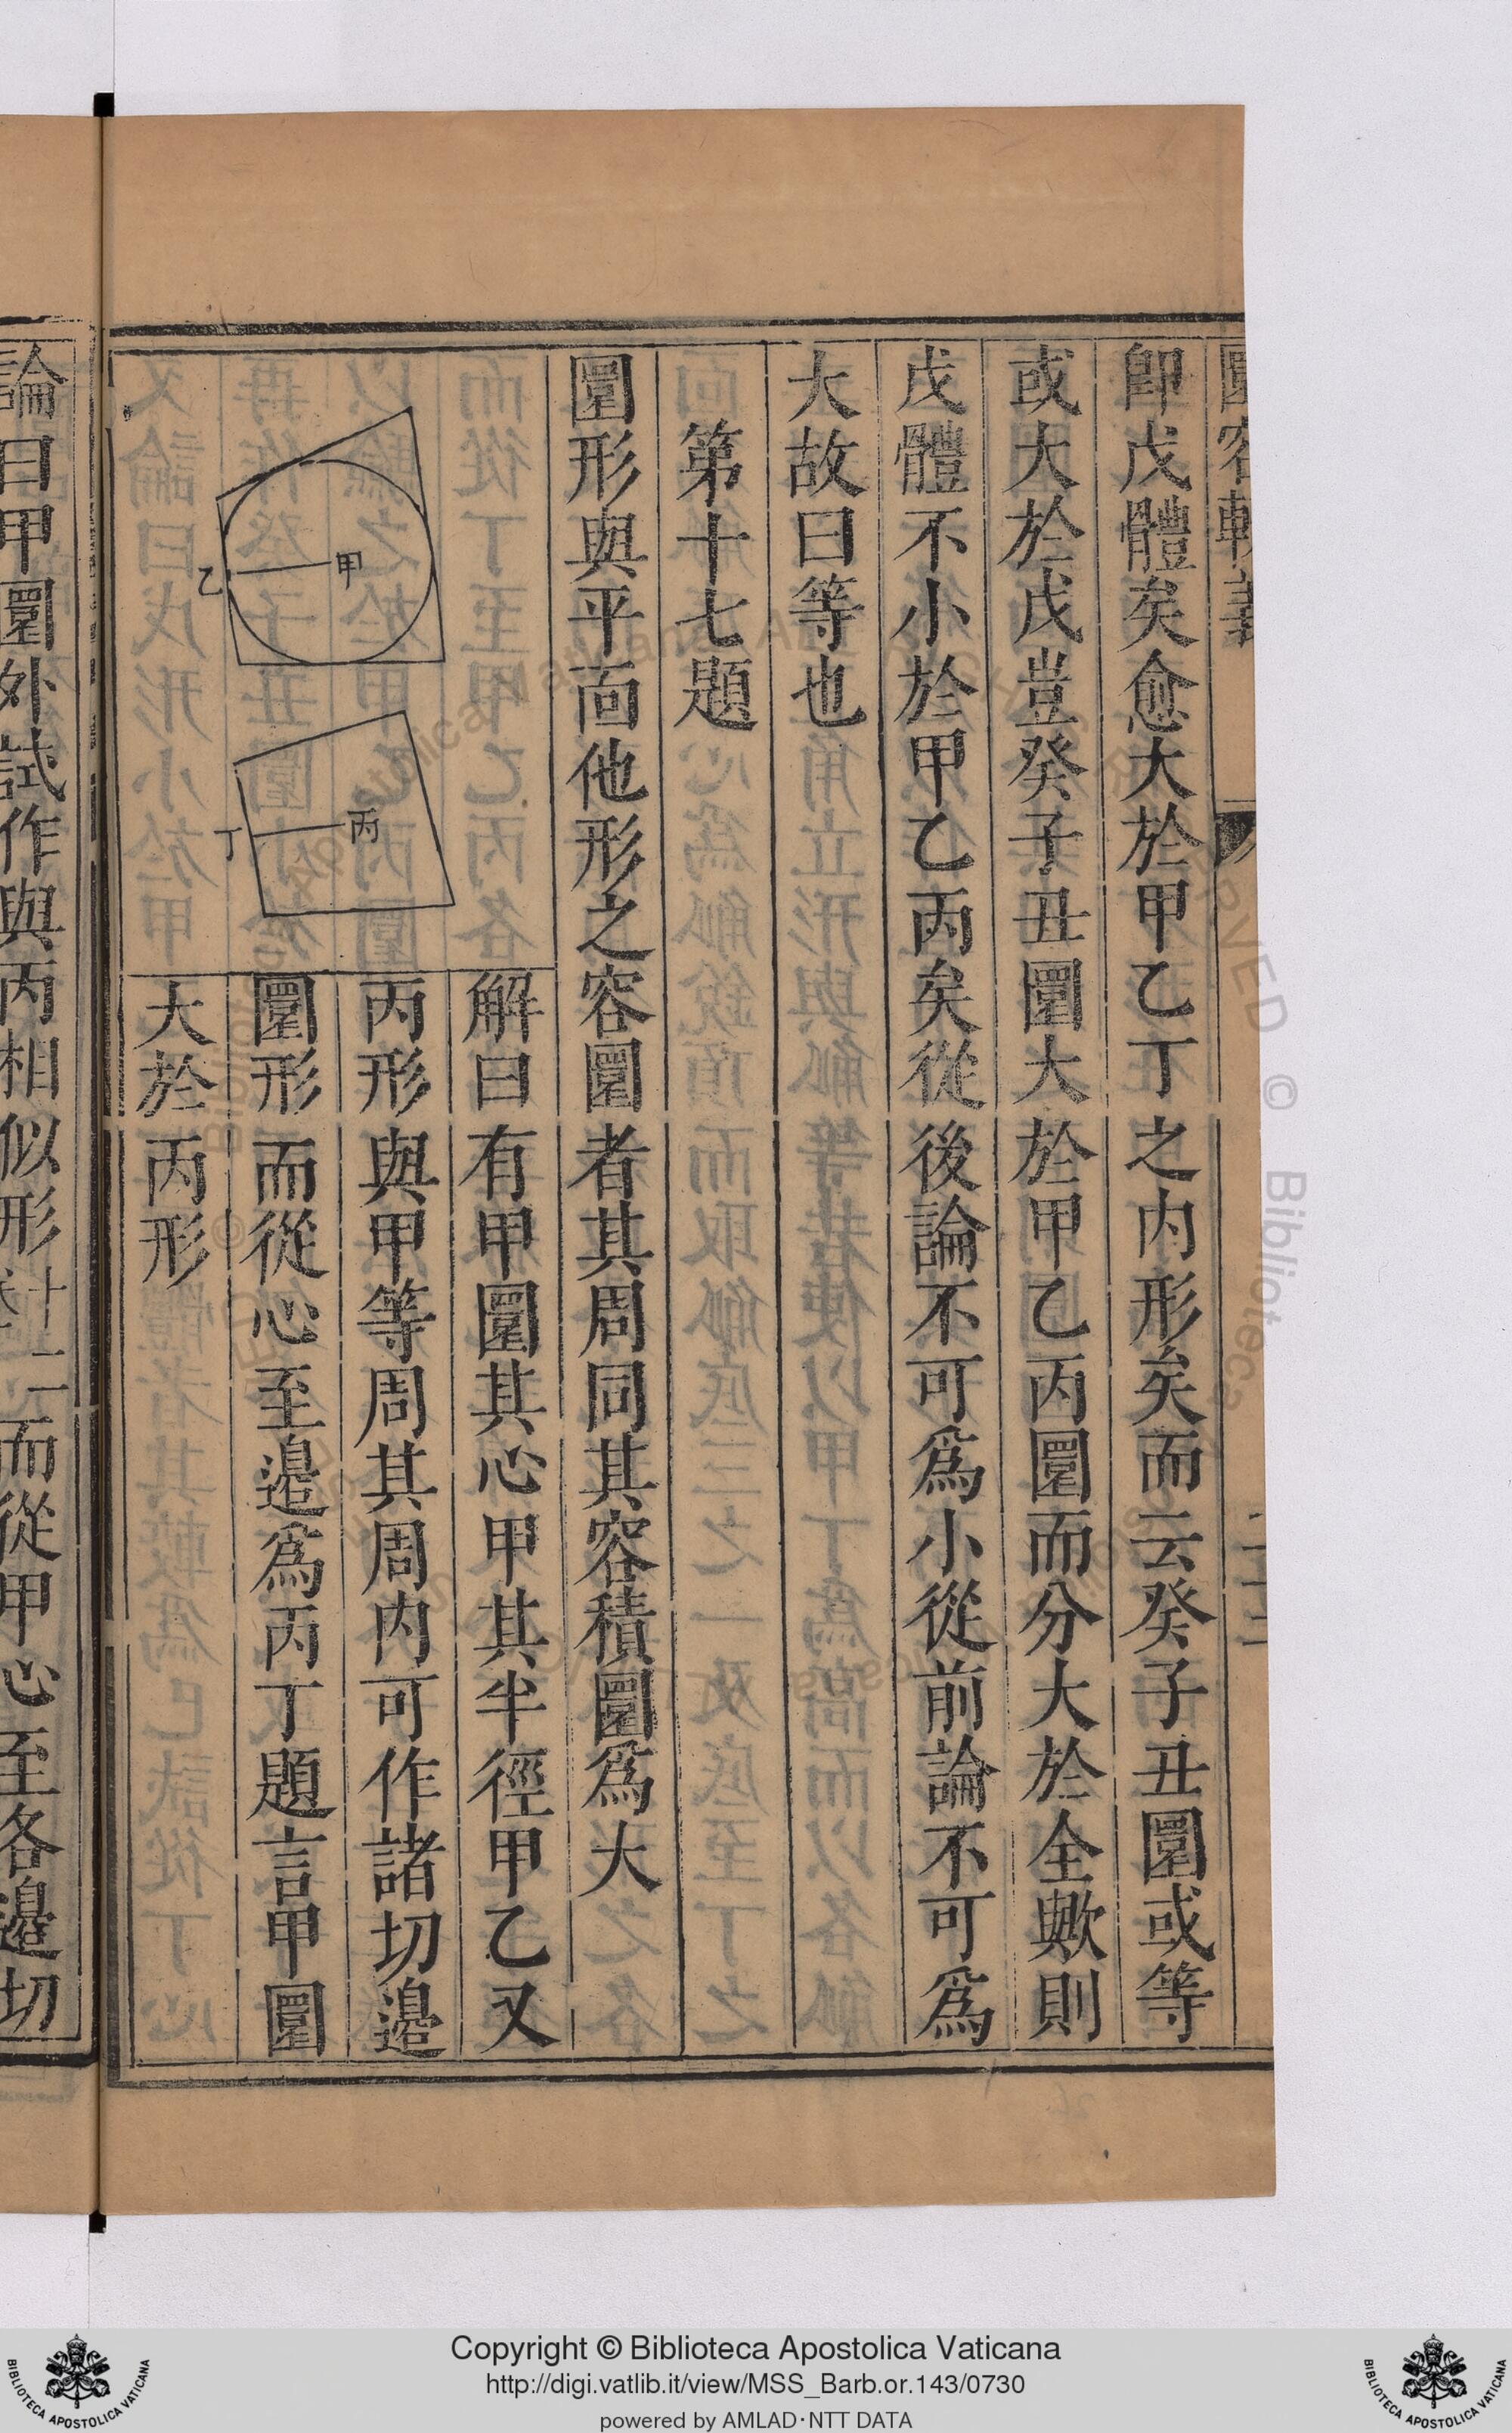 圜容較義
即戊體矣愈大於甲乙丁之内形矣而云癸子丑圜或等
或大於戊豈癸子丑圜大於甲乙丙圜而分大於全歟則
戊體不小於甲乙丙矣從後論不可爲小從前論不可爲
大故曰等也
第十七題
圜形與平面他形之容圜者其周同其容積圜爲大
解曰有甲圜其心甲其半徑甲乙又
丙形與甲等周其周内可作諸切邊
圜形而從心至邊爲丙丁題言甲圜
大於丙形
甲
乙
丙
丁
論曰甲圜外試作與丙相似形
而從甲心至各邊切
Copyright © Biblioteca Apostolica Vaticana
http://digi.vatlib.it/view/MSS_Barb.or.143/0730
powered by AMLAD·NTT DATA
BIBLIOTECA APOSTOLICA VATICANA
BIBLIOTECA APOSTOLICA VATICANA